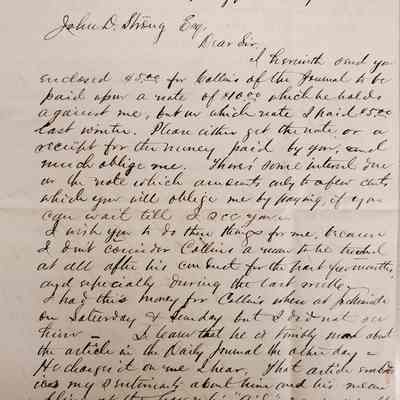 John D. Strong Esq.
Dear Sir,
I herewith send you
enclosed $5.00 for Collins of the Journal to be
paid upon a note of $10.00 which he holds
against me, but on which note I paid $5.00
last winter. Please either get the note or a
receipt for the money paid by you, and
much oblige me. There's some interest due
on the note which amounts only to a few cents
which you will oblige me by paying, if you
can wait till I see you.
I wish you to do these things for me, because
I don't consider Collins a man to be trusted
at all after his conduct for the past few months,
and especially during the last
I had this money for Collins when at
on Saturday & Sunday but I did not see
him — I learn that he is terribly mad about
the article in the Daily Journal the other day —
He charges it on me I hear. That article
was my sentiments about him and his mean